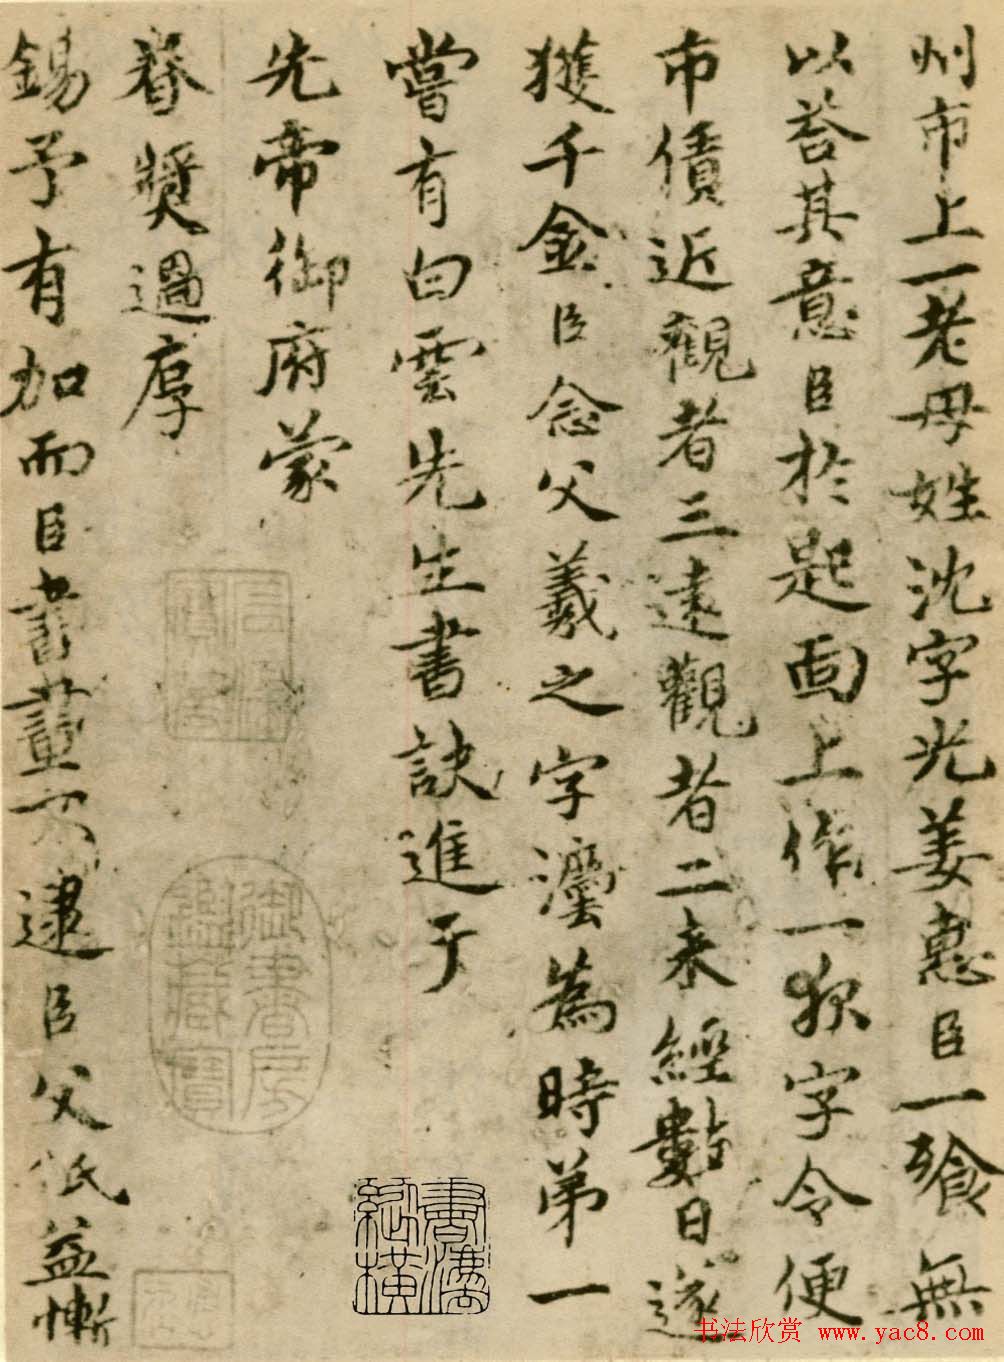 州市上一老母姓沈字光姜惠臣一飱無
以荅其意臣於匙面上作一夜字令便
市債近觀者三遠觀者二未經數日遂
獲千金臣念父羲之字法為時第一
嘗有白雲先生書訣進于
先帝御府蒙
眷奬過厚
錫予有加而臣書畫不逮臣父祗益慚
御書房鑑藏寶
書法縱橫
书法欣赏 www.yac8.com